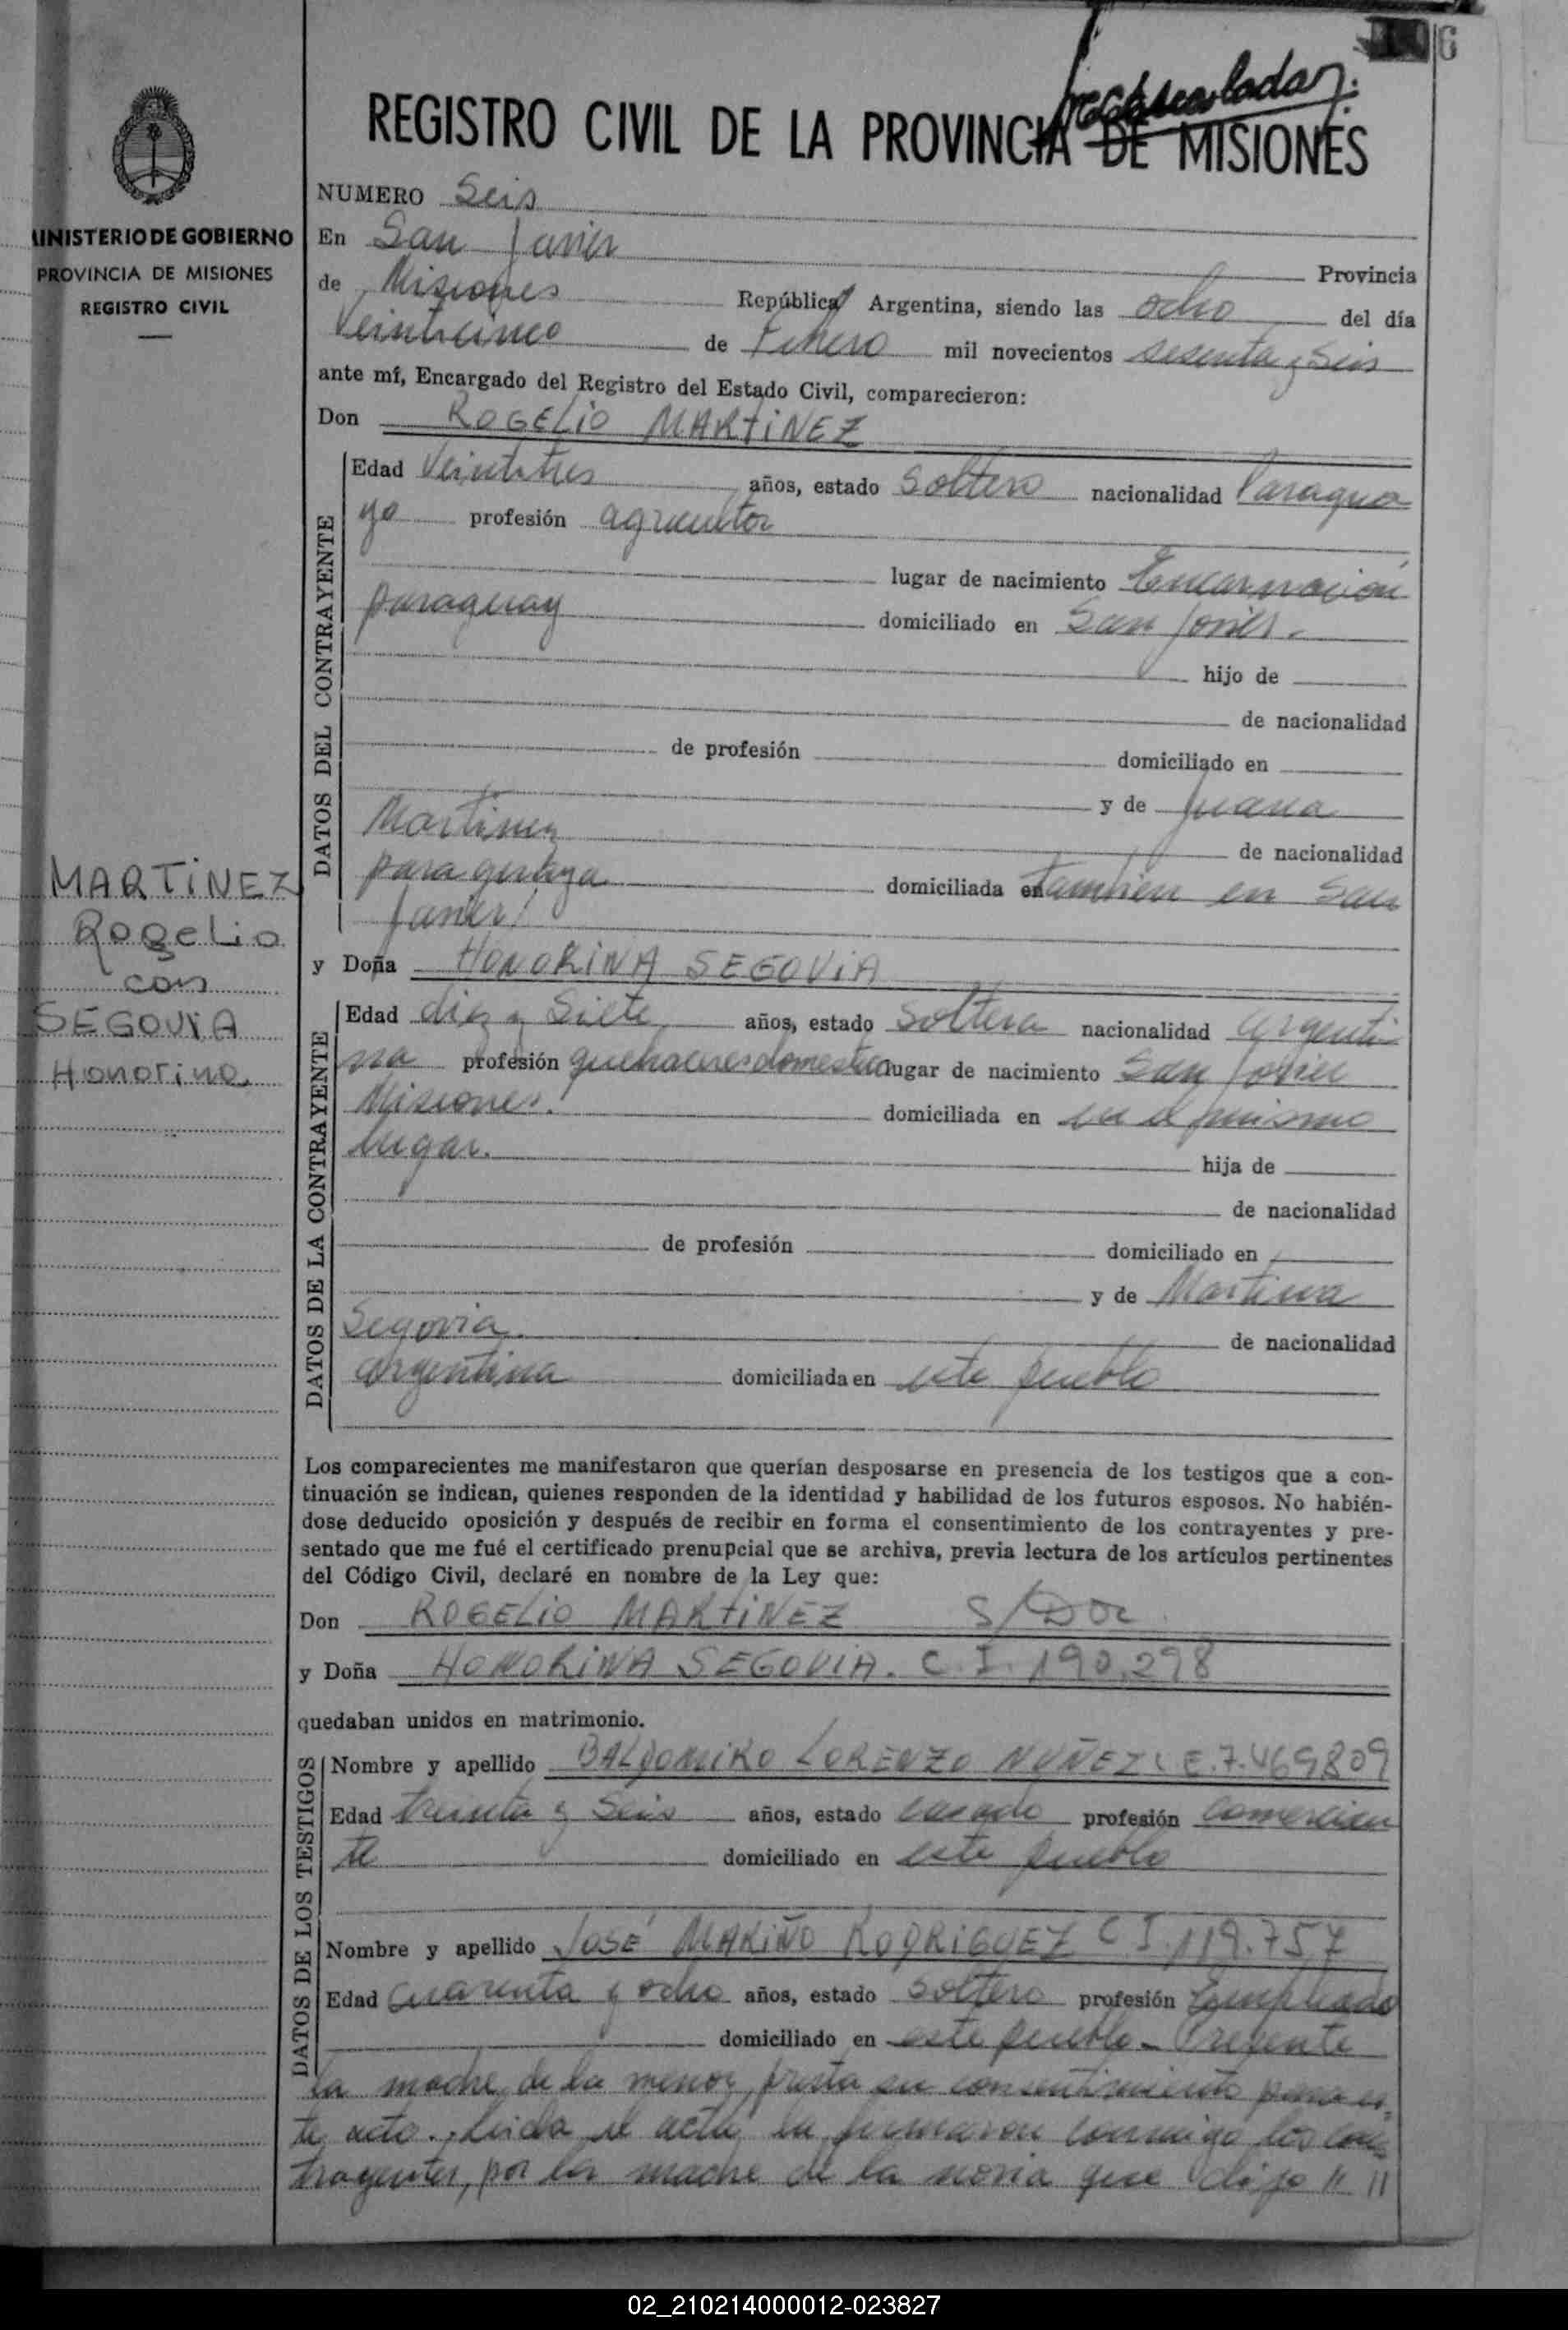 6
REGISTRO CIVIL DE LA PROVINCIA DE MISIONES
MINISTERIO DE GOBIERNO
PROVINCIA DE MISIONES
REGISTRO CIVIL
NUMERO Seis
En San Javier Provincia
de Misiones República Argentina, siendo las ocho del día
Veinticinco de Enero mil novecientos sesenta y Seis
ante mí, Encargado del Registro del Estado Civil, comparecieron:
Don ROGELIO MARTINEZ
DATOS DEL CONTRAYENTE
Edad Veintitres años, estado Soltero nacionalidad Paragua
yo profesión agricultor
lugar de nacimiento Encarnación
paraguay domiciliado en San Javier.
hijo de
de nacionalidad
de profesión domiciliado en
y de Juana
Martinez de nacionalidad
paraguaya domiciliada en tambien en San
Javier
MARTINEZ
Rogelio
con
SEGOVIA
Honorina
y Doña HONORINA SEGOVIA
DATOS DE LA CONTRAYENTE
Edad diez y Siete años, estado Soltera nacionalidad argenti
na profesión quehaceres domestica lugar de nacimiento San Javier
Misiones. domiciliada en en el mismo
lugar. hija de
de nacionalidad
de profesión domiciliado en
y de Martina
Segovia de nacionalidad
argentina domiciliada en este pueblo
Los comparecientes me manifestaron que querían desposarse en presencia de los testigos que a con-
tinuación se indican, quienes responden de la identidad y habilidad de los futuros esposos. No habién-
dose deducido oposición y después de recibir en forma el consentimiento de los contrayentes y pre-
sentado que me fué el certificado prenupcial que se archiva, previa lectura de los artículos pertinentes
del Código Civil, declaré en nombre de la Ley que:
Don ROGELIO MARTINEZ S/Doc
y Doña HONORINA SEGOVIA. C.I. 190.298
quedaban unidos en matrimonio.
DATOS DE LOS TESTIGOS
Nombre y apellido BALDOMIRO LORENZO NUÑEZ L.E.7.469809
Edad treinta y Seis años, estado casado profesión comercian
te domiciliado en este pueblo
Nombre y apellido JOSÉ MARIÑO RODRIGUEZ C.I.119.757
Edad cuarenta y ocho años, estado Soltero profesión Empleado
domiciliado en este pueblo - Presente
la madre de la menor, presta su consentimiento para es
te acto. Leida el acta la firmaron conmigo los con
trayentes, por la madre de la novia que dijo " "
02_210214000012-023827